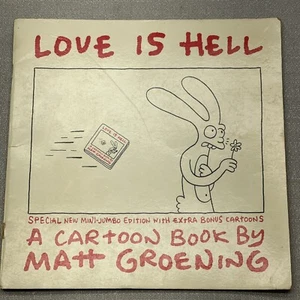 LOVE IS HELL
LOVE IS HELL
SPECIAL NEW MINI-JUMBO EDITION WITH EXTRA BONUS CARTOONS
A CARTOON BOOK BY
MATT GROENING